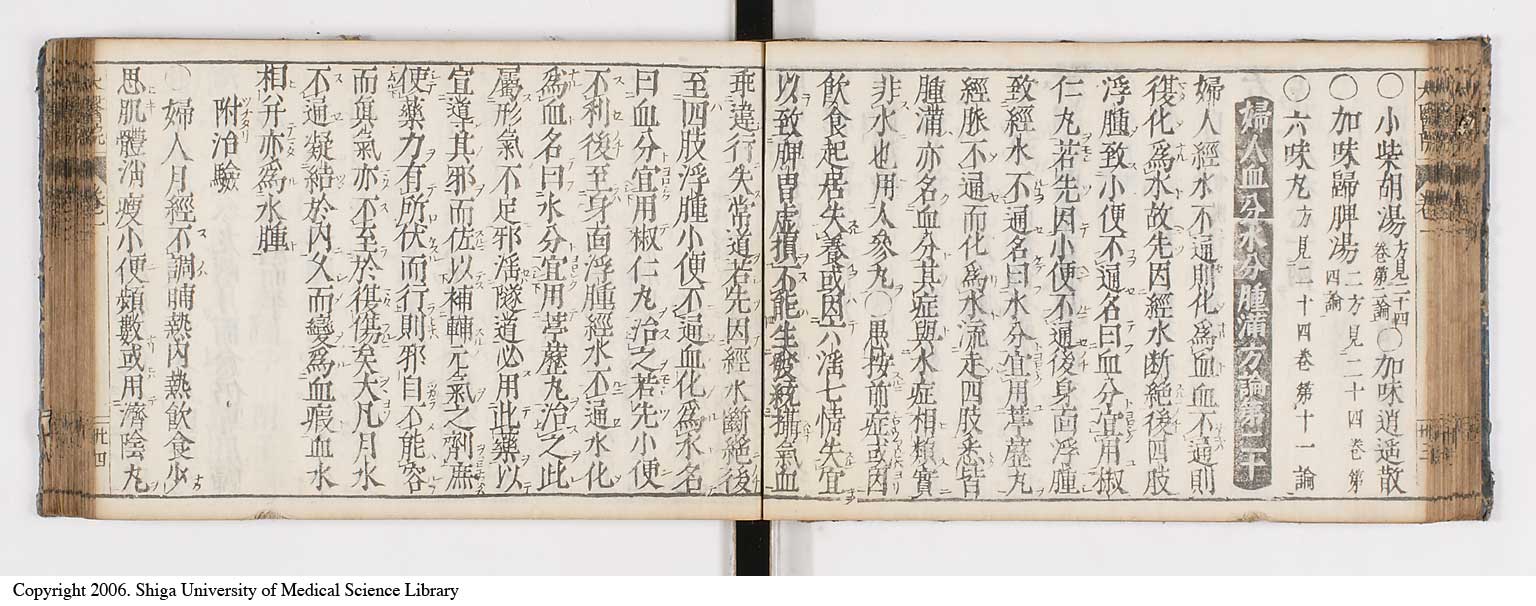 〇小柴胡湯方見二十四卷第二論〇加味逍遥散
〇加味歸脾湯二方見二十四卷第四論
〇六味丸方見二十四卷第十一論
婦人血分水分腫滿方論第二十
婦人經水不通則化爲血血不通則
復化爲水故先因經水断絶後四肢
浮腫致小便不通名曰血分宜用椒
仁丸若先因小便不通後身面浮腫
致經水不通名曰水分宜用葶藶丸
經脉不通而化爲水流走四肢悉皆
腫滿亦名血分其症與水症相類實
非水也用人參丸〇愚按前症或因
飲食起居失養或因六淫七情失宜
以致脾胃虚損不能生發統攝氣血
乖違行失常道若先因經水斷絶後
至四肢浮腫小便不通血化爲水名
曰血分宜用椒仁丸治之若先小便
不利後至身面浮腫經水不通水化
爲血名曰水分宜用葶藶丸治之此
屬形氣不足邪淫隧道必用此藥以
宜導其邪而佐以補輔元氣之劑庶
使藥力有所伏而行則邪自不能容
而眞氣亦不至於復傷矣大凡月水
不通凝結於内久而變爲血瘕血水
相并亦爲水腫
附治驗
〇婦人月經不調晡熱内熱飲食少
思肌體消瘦小便頻數或用濟陰丸
卅四
Copyright 2006. Shiga University of Medical Science Library